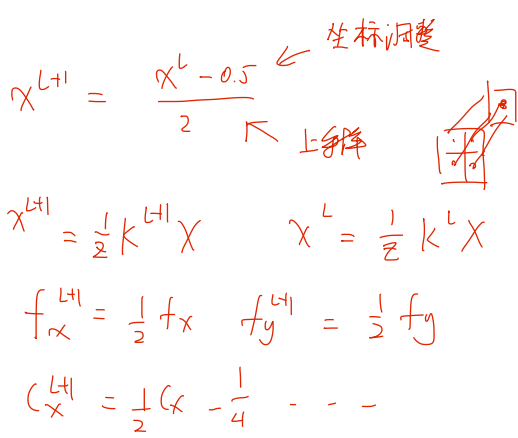 坐标调整
x^{L+1} = \frac{x^L - 0.5}{2}
上采样
x^{L+1} = \frac{1}{z} K^{L+1} X x^L = \frac{1}{z} K^L X
f_x^{L+1} = \frac{1}{2} f_x f_y^{L+1} = \frac{1}{2} f_y
C_x^{L+1} = \frac{1}{2} C_x - \frac{1}{4} - - -